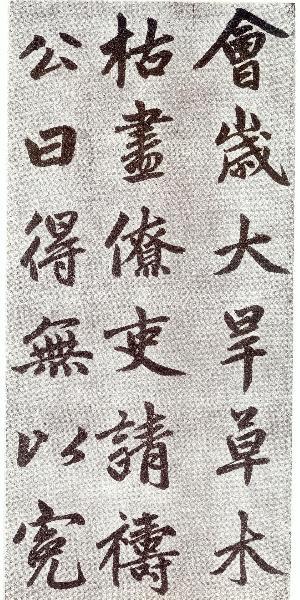 會歲大旱草木
枯盡僚吏請禱
公曰得無以冤